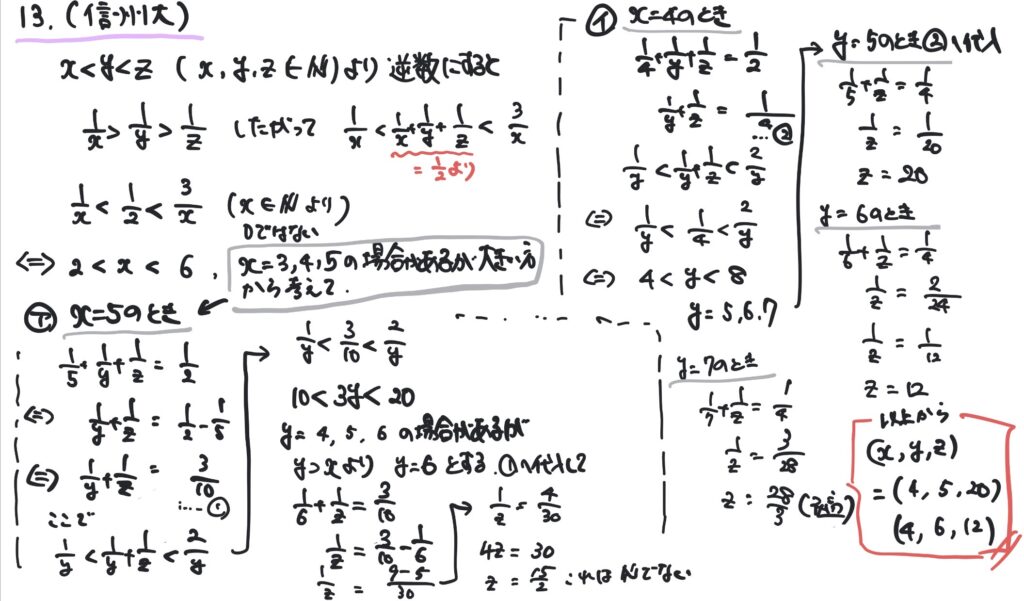 13. (信州大)
x<y<z (x, y, z ∈ N) より 逆数にすると
1/x > 1/y > 1/z したがって 1/x < 1/x + 1/y + 1/z < 3/x
= 1/2 より
1/x < 1/2 < 3/x (x ∈ N より)
0ではない
⇔ 2 < x < 6 ,
x=3,4,5の場合があるが大きい方
から考えて.
㋐ x=5のとき
1/5 + 1/y + 1/z = 1/2
⇔ 1/y + 1/z = 1/2 - 1/5
⇔ 1/y + 1/z = 3/10
...①
ここで
1/y < 1/y + 1/z < 2/y
1/y < 3/10 < 2/y
10 < 3y < 20
y = 4, 5, 6 の場合があるが
y>xより y=6とする. ①へ代入して
1/6 + 1/z = 3/10
1/z = 3/10 - 1/6
1/z = 9-5/30
1/z = 4/30
4z = 30
z = 15/2 これは Nでない
㋑ x=4のとき
1/4 + 1/y + 1/z = 1/2
1/y + 1/z = 1/4
...②
1/y < 1/y + 1/z < 2/y
⇔ 1/y < 1/4 < 2/y
⇔ 4 < y < 8
y = 5,6,7
y=5のとき②へ代入
1/5 + 1/z = 1/4
1/z = 1/20
z = 20
y=6のとき
1/6 + 1/z = 1/4
1/z = 2/24
1/z = 1/12
z = 12
y=7のとき
1/7 + 1/z = 1/4
1/z = 3/28
z = 28/3
以上から
(x, y, z)
= (4, 5, 20)
(4, 6, 12)